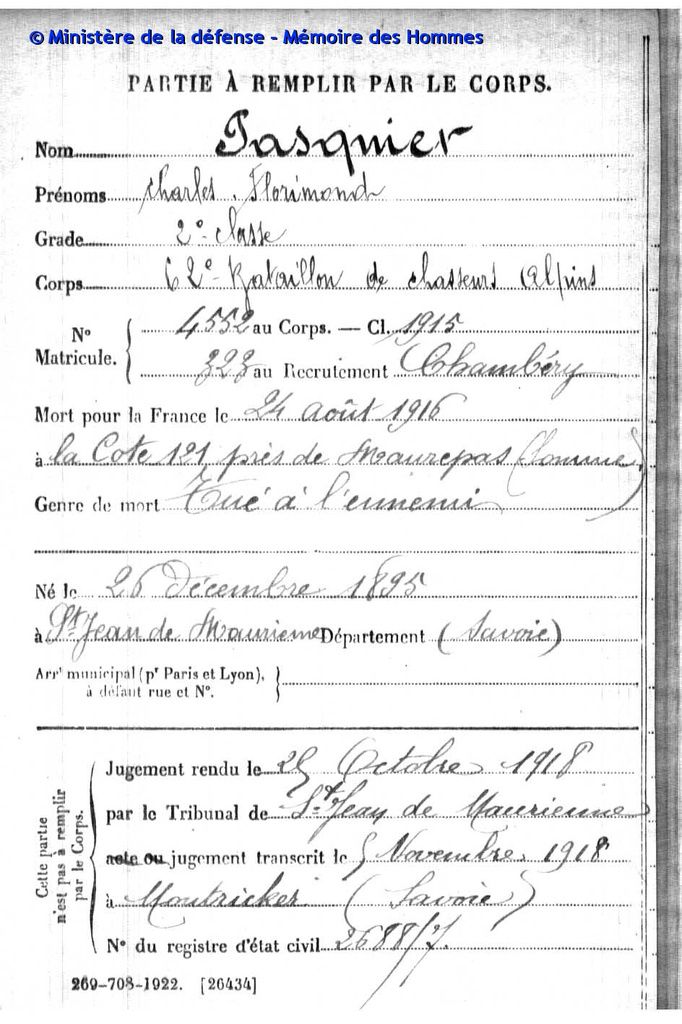 © Ministère de la défense - Mémoire des Hommes
PARTIE À REMPLIR PAR LE CORPS.
Nom Pasquier
Prénoms Charles, Florimond
Grade 2e classe
Corps 62e Bataillon de chasseurs Alpins
N° Matricule. { 4552 au Corps. — Cl. 1915
323 au Recrutement Chambéry
Mort pour la France le 24 août 1916
à la Cote 121 près de Maurepas (Somme)
Genre de mort Tué à l'ennemi
Né le 26 Décembre 1895
à St Jean de Maurienne Département (Savoie)
Arrt municipal (pr Paris et Lyon),
à défaut rue et N°.
Cette partie n'est pas à remplir par le Corps.
Jugement rendu le 25 Octobre 1918
par le Tribunal de St Jean de Maurienne
acte ou jugement transcrit le 5 Novembre 1918
à Montricher (Savoie)
N° du registre d'état civil 2688/7.
269-708-1922. [26434]